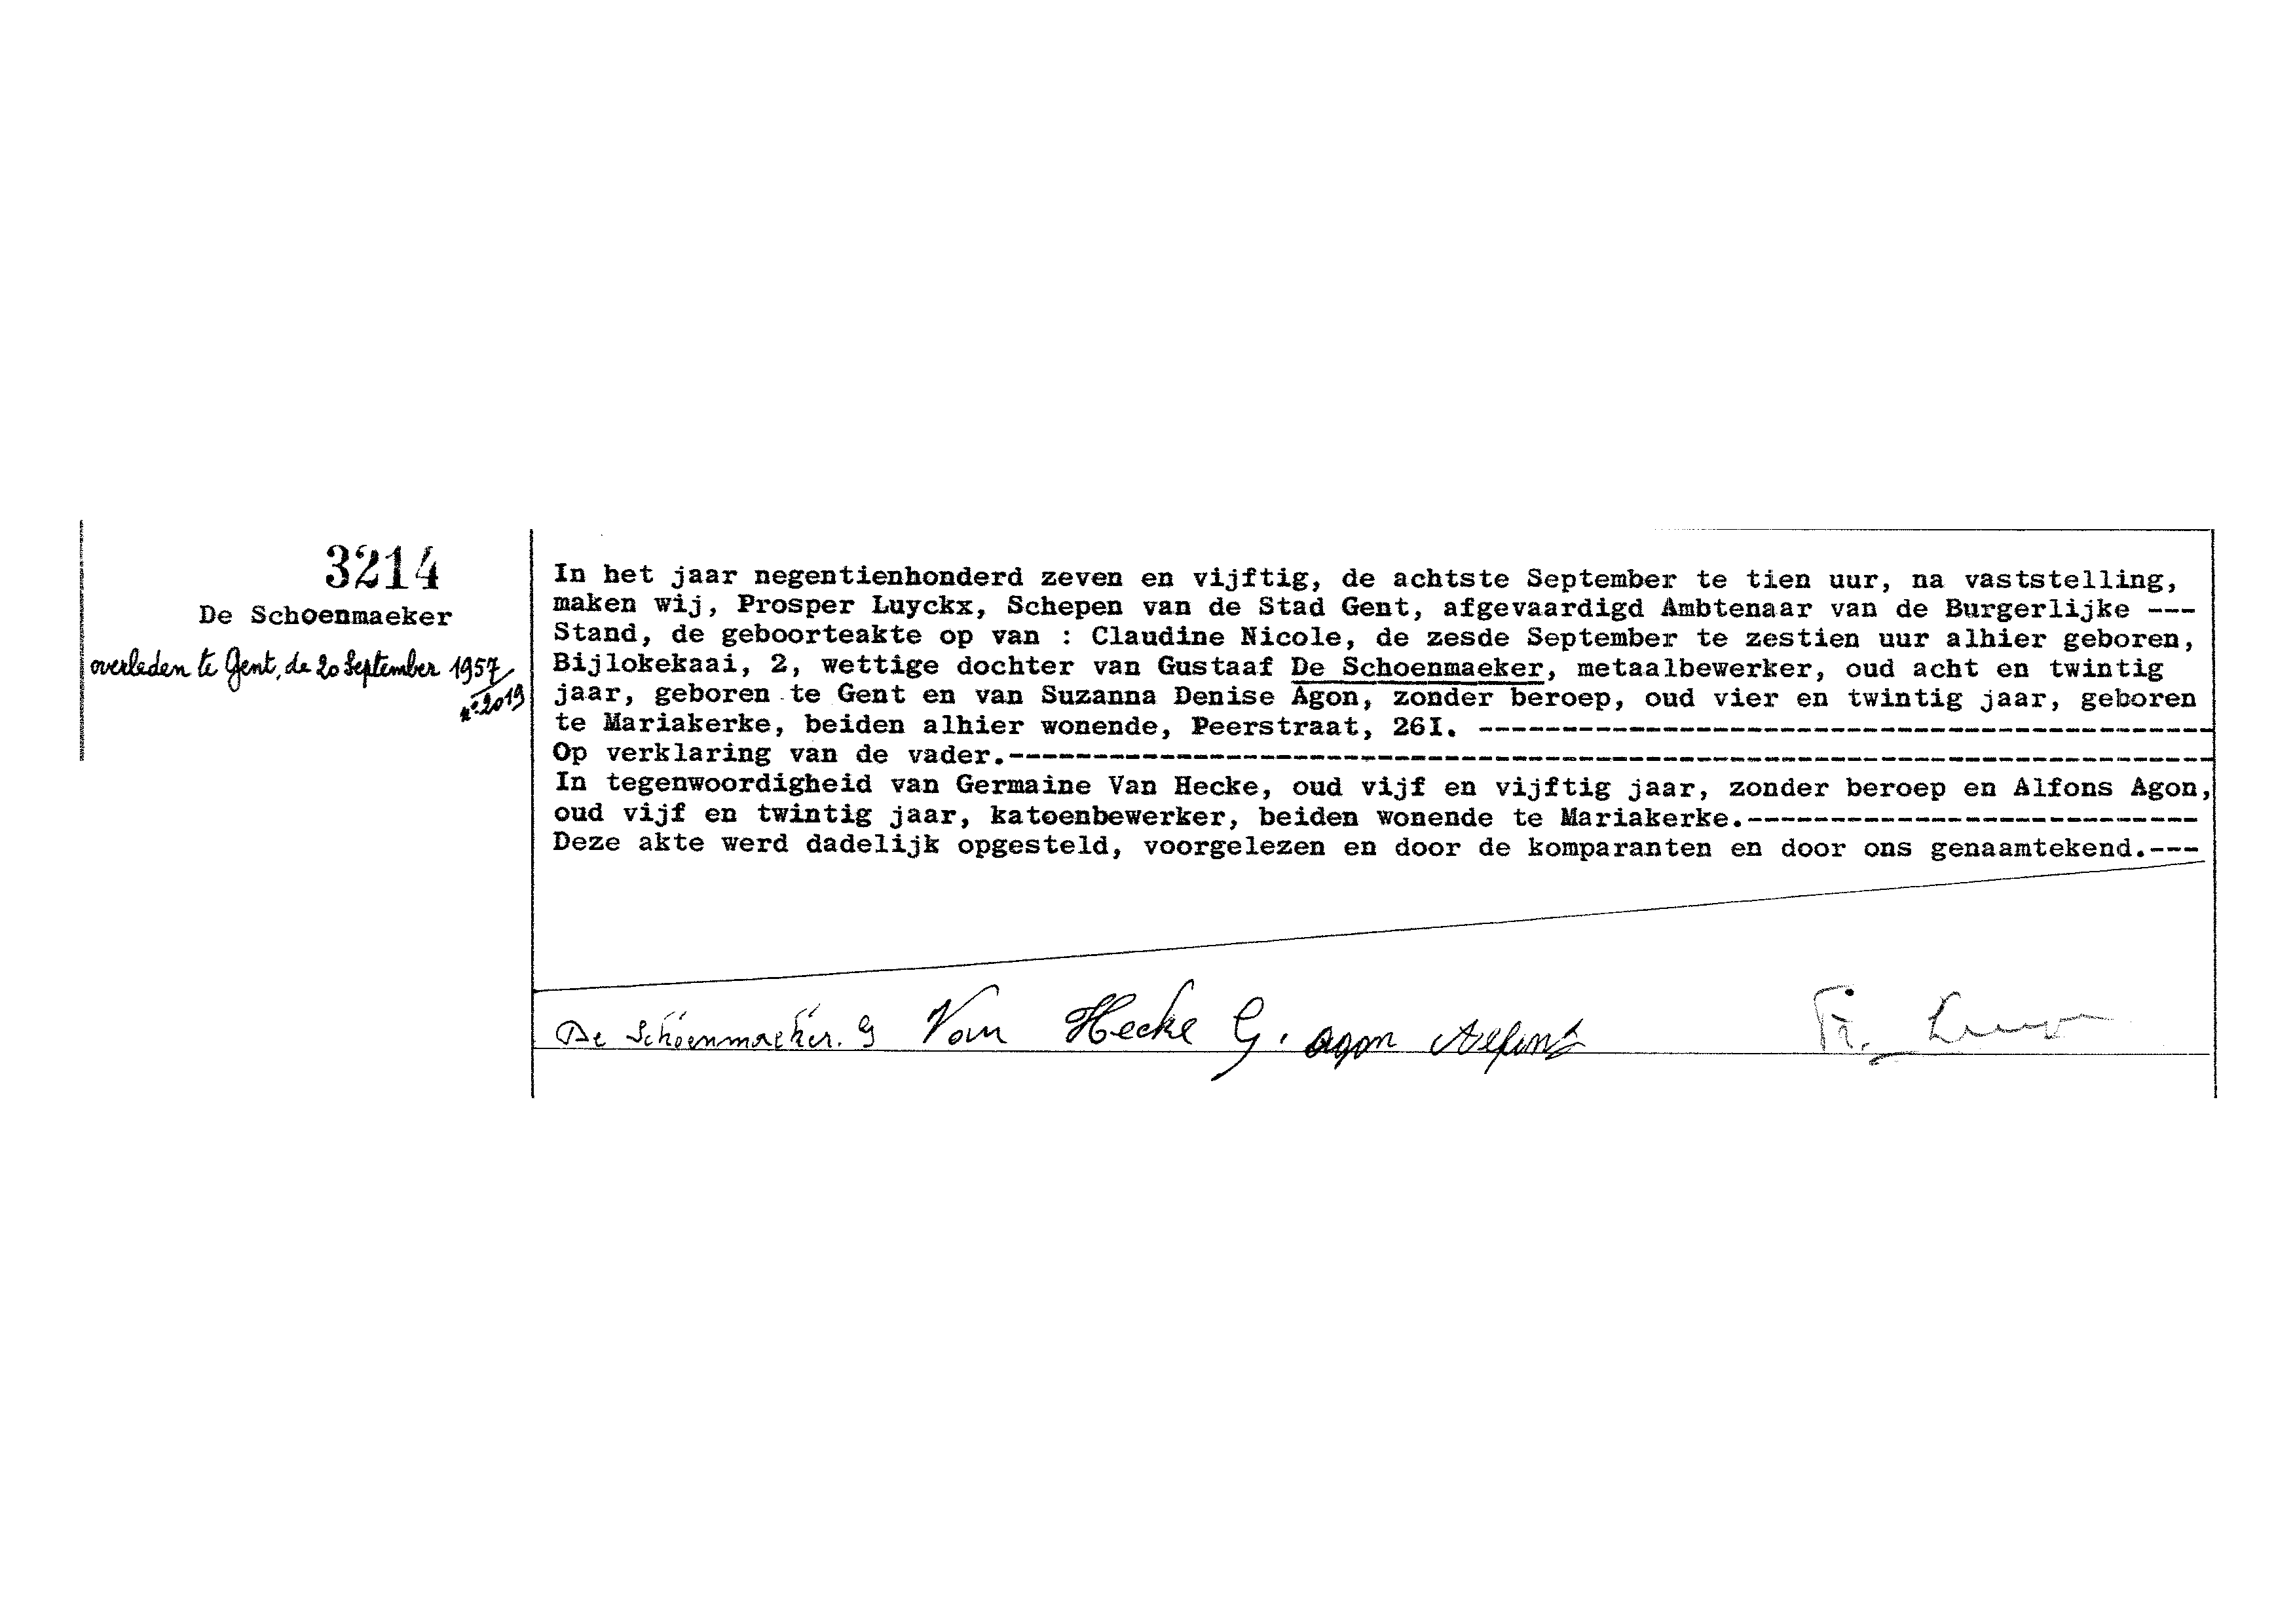 3214
De Schoenmaeker
overleden te Gent, de 20 September 1957
n° 2019
In het jaar negentienhonderd zeven en vijftig, de achtste September te tien uur, na vaststelling,
maken wij, Prosper Luyckx, Schepen van de Stad Gent, afgevaardigd Ambtenaar van de Burgerlijke ---
Stand, de geboorteakte op van : Claudine Nicole, de zesde September te zestien uur alhier geboren,
Bijlokekaai, 2, wettige dochter van Gustaaf De Schoenmaeker, metaalbewerker, oud acht en twintig
jaar, geboren te Gent en van Suzanna Denise Agon, zonder beroep, oud vier en twintig jaar, geboren
te Mariakerke, beiden alhier wonende, Peerstraat, 26I. --------------------------------------------
Op verklaring van de vader.------------------------------------------------------------------------
In tegenwoordigheid van Germaine Van Hecke, oud vijf en vijftig jaar, zonder beroep en Alfons Agon,
oud vijf en twintig jaar, katoenbewerker, beiden wonende te Mariakerke.---------------------------
Deze akte werd dadelijk opgesteld, voorgelezen en door de komparanten en door ons genaamtekend.---
De Schoenmaeker. G Van Hecke G. agon Alfons